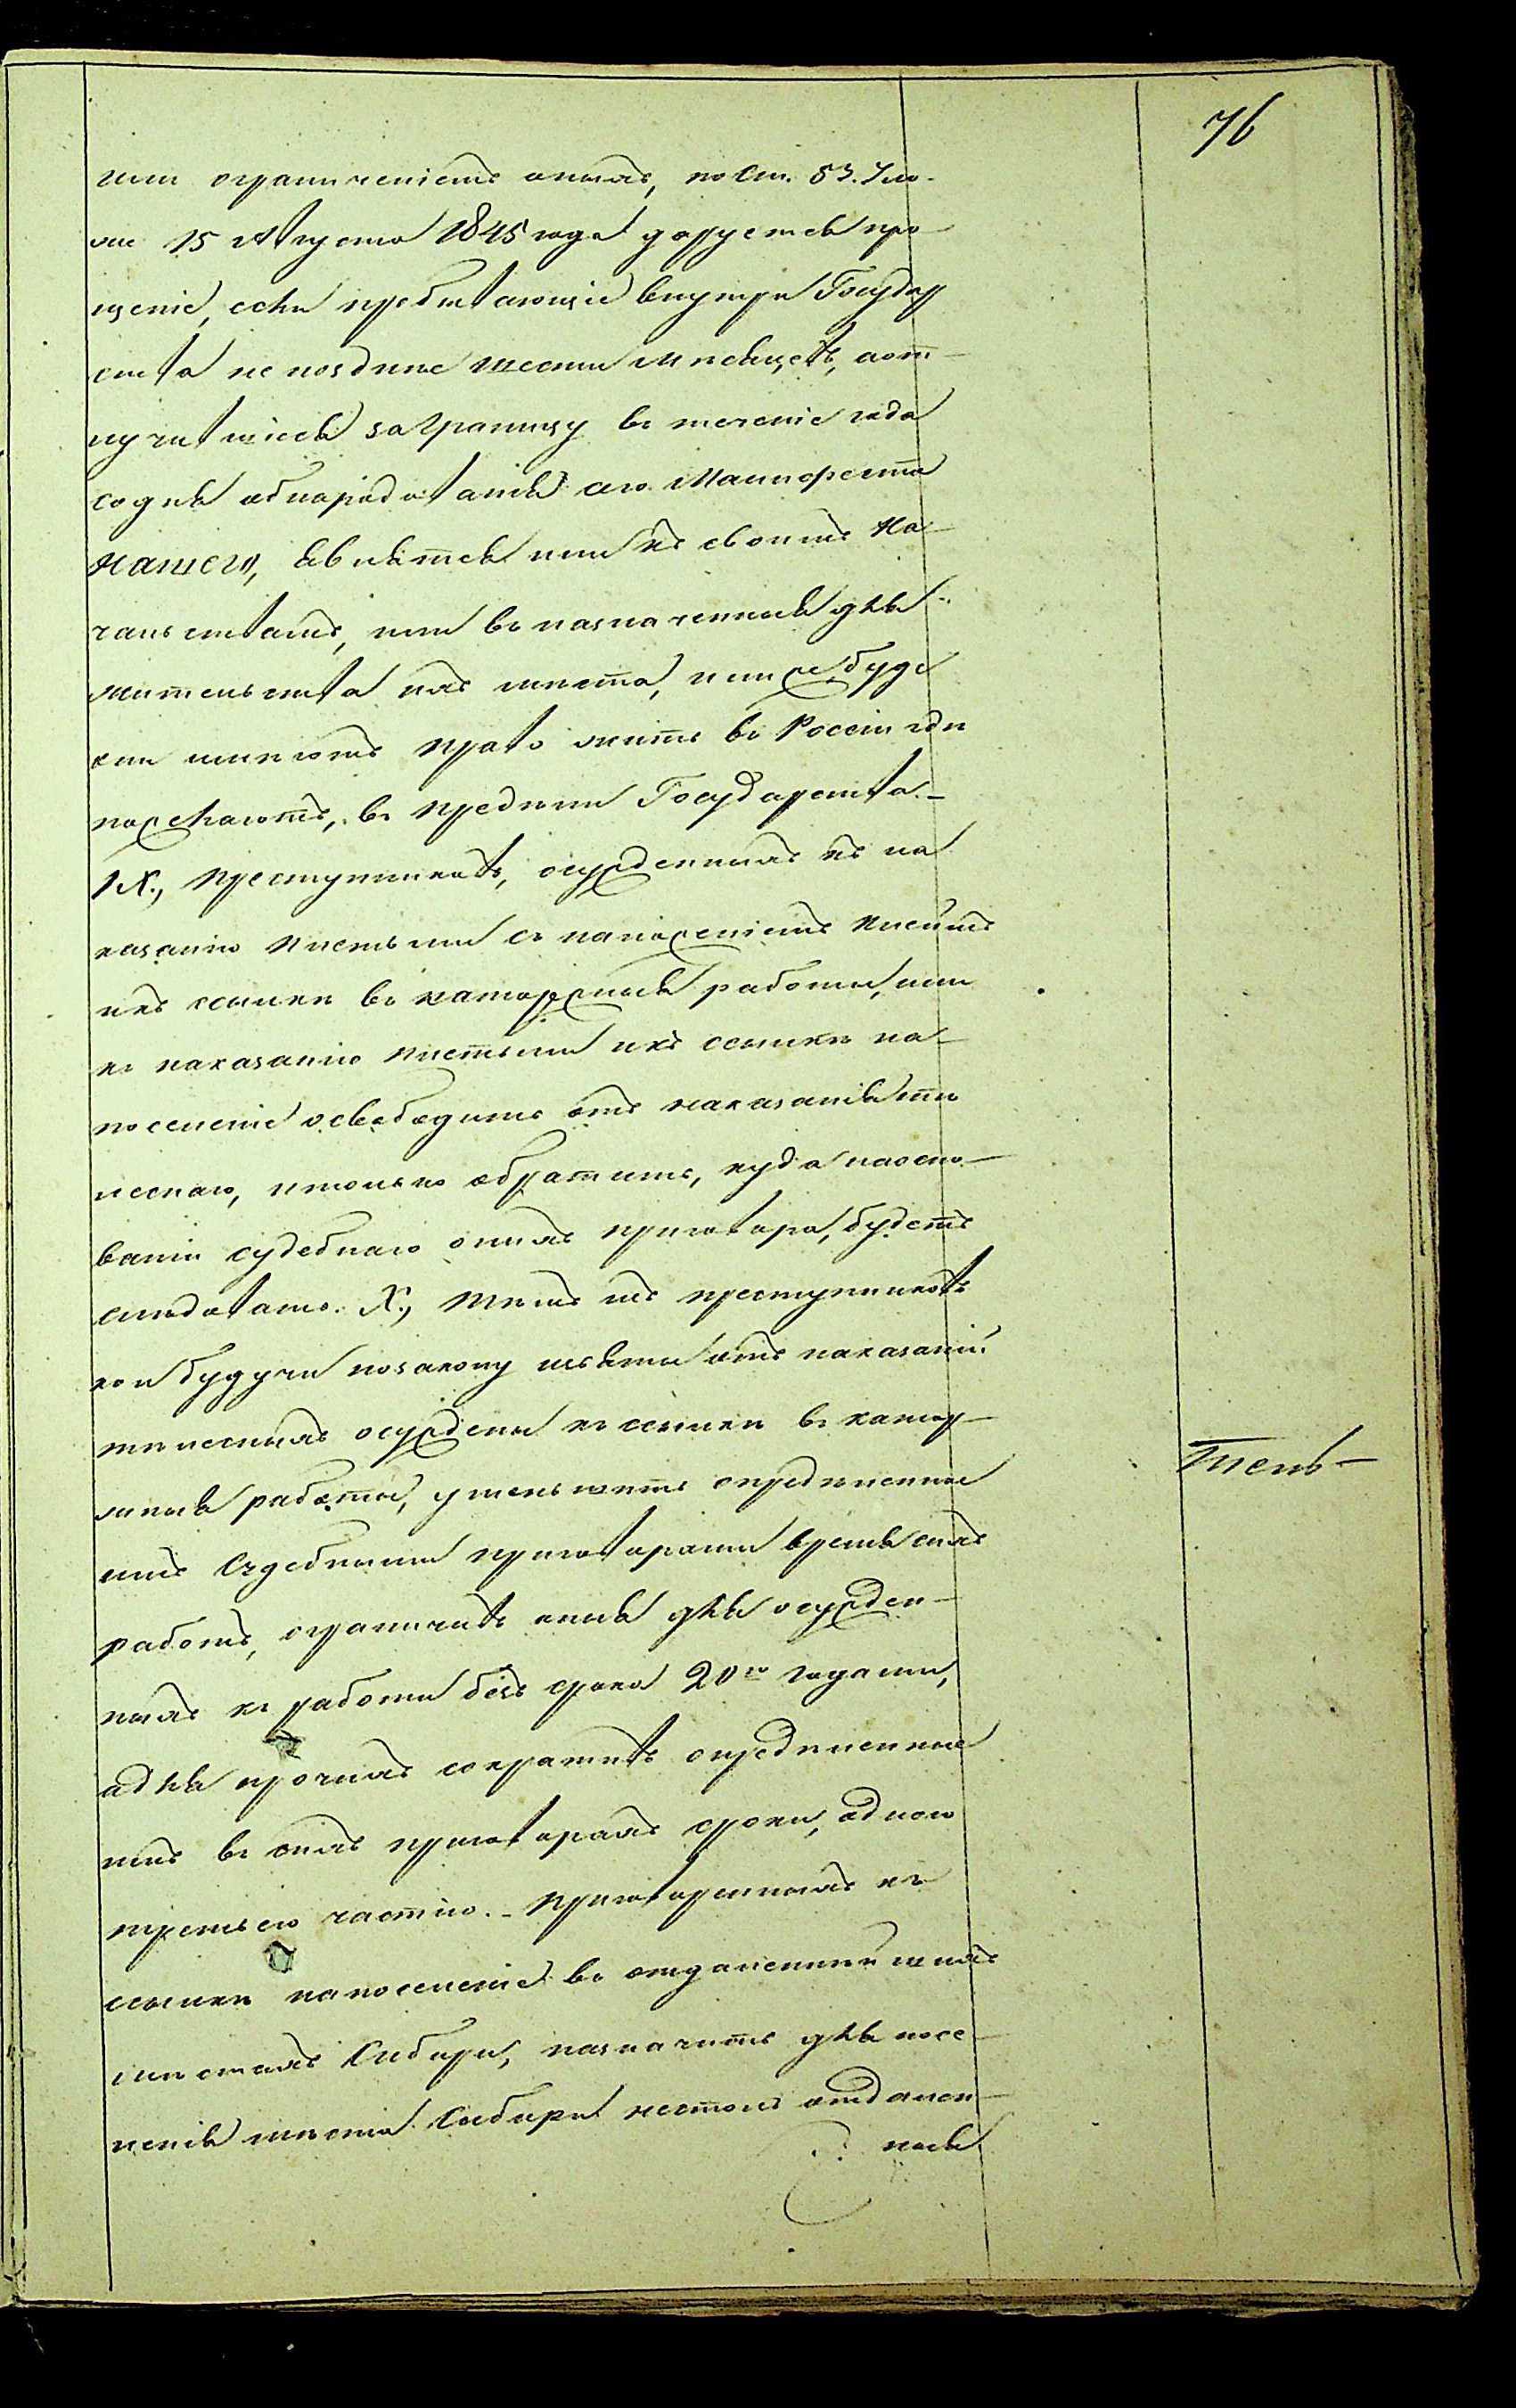 76
или ограниченіемъ оныхъ, по Ст. 83. Уло-
же 15 Августа 1845 года даруется про
щеніе, если пребывающіе внутри Государ
ства не позднѣе шести мѣсяцевъ, а от-
лучившіеся за границу въ теченіе года
со дня обнародованія сего Манифеста
Нашего, явятся или къ своимъ На-
чальствамъ, или въ назначенныя для
жительства ихъ мѣста, или же буде
они имѣютъ право жить въ Россіи гдѣ
пожелаютъ, въ предѣлы Государства.-
IX., Преступниковъ, осужденныхъ къ на
казанію плетьми съ наложеніемъ клеймъ
и къ ссылкѣ въ каторжныя работы, или
къ наказанію плетьми и къ ссылкѣ на-
поселеніе освободить отъ наказанія тѣ
леснаго, и только обратить, куда на осно-
ваніи судебнаго о нихъ приговора, будетъ
слѣдовать. X., Тѣмъ изъ преступниковъ
кои будучи по закону изъяты отъ наказаній
тѣлесныхъ осуждены къ ссылкѣ въ катор-
жныя работы, уменьшить опредѣленные
имъ Судебными приговорами время сихъ
работъ, ограничивъ оныя для осужден-
ныхъ къ работы безъ срока 20ю годами,
а для прочихъ сокративъ опредѣленные
имъ въ сихъ приговорахъ сроки, одною
третьею частію. - Приговоренныхъ къ
ссылкѣ на поселеніе въ отдаленнѣйшихъ
мѣстахъ Сибири, назначить для посе-
ленія мѣста Сибири не столь отдален-
ныя
Тлень-